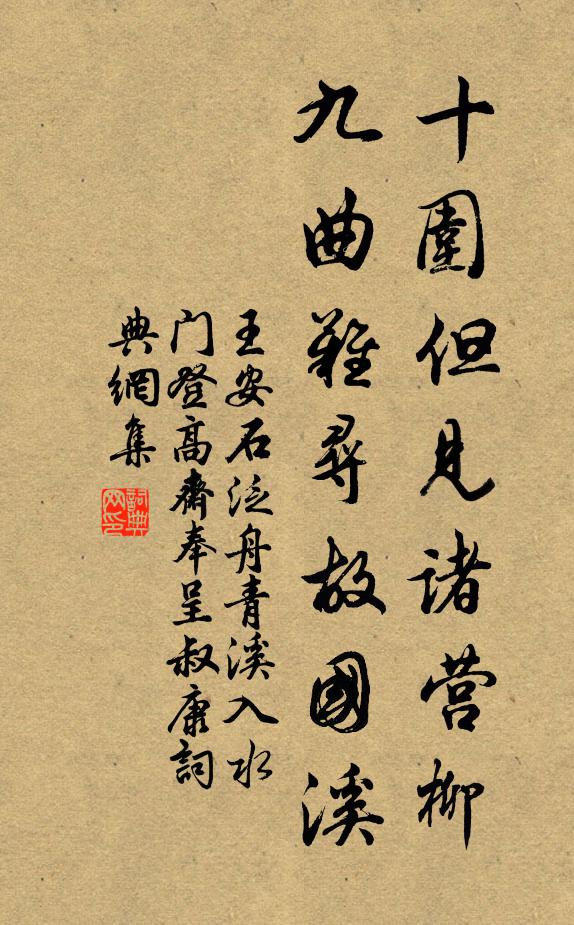 十圍但見諸营柳
九曲難尋故國溪
王安石泛舟青溪入水
门登高齋奉呈叔康詞
典網集
詞典
网印